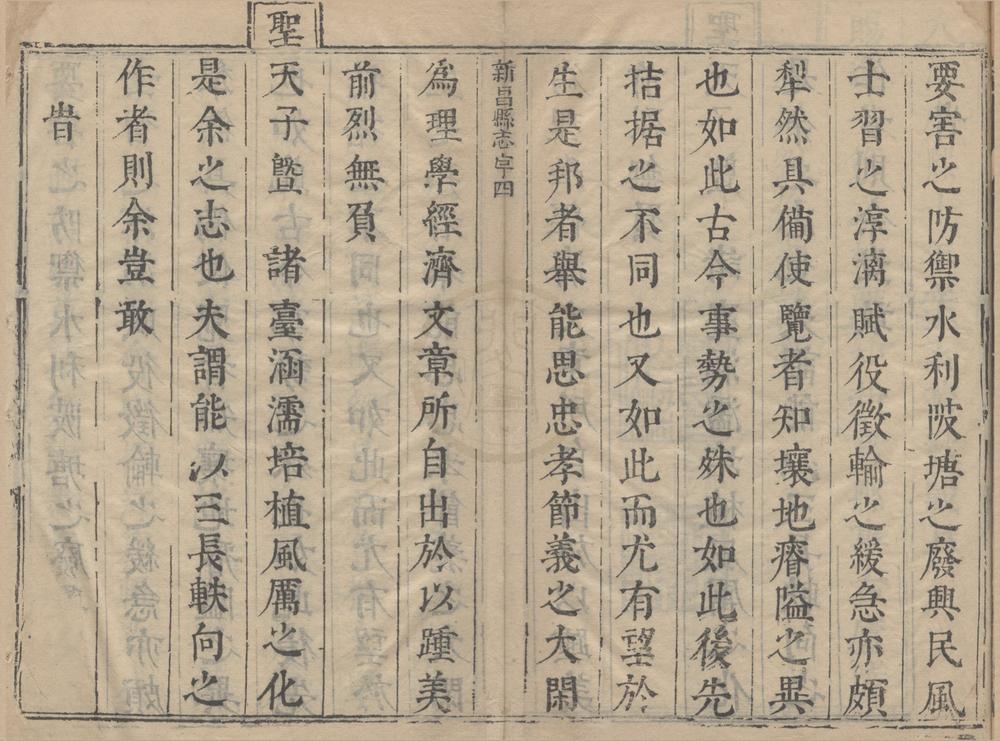 要害之防禦水利陂塘之廢興民風
士習之淳漓賦役徵輸之緩急亦頗
犁然具備使覽者知壤地瘠隘之異
也如此古今事勢之殊也如此後先
拮据之不同也又如此而尤有望於
生是邦者舉能思忠孝節義之大閑
新昌縣志
四
為理學經濟文章所自出於以踵美
前烈無負
聖
天子曁諸臺涵濡培植風厲之化
是余之志也夫謂能以三長軼向之
作者則余豈敢
旹